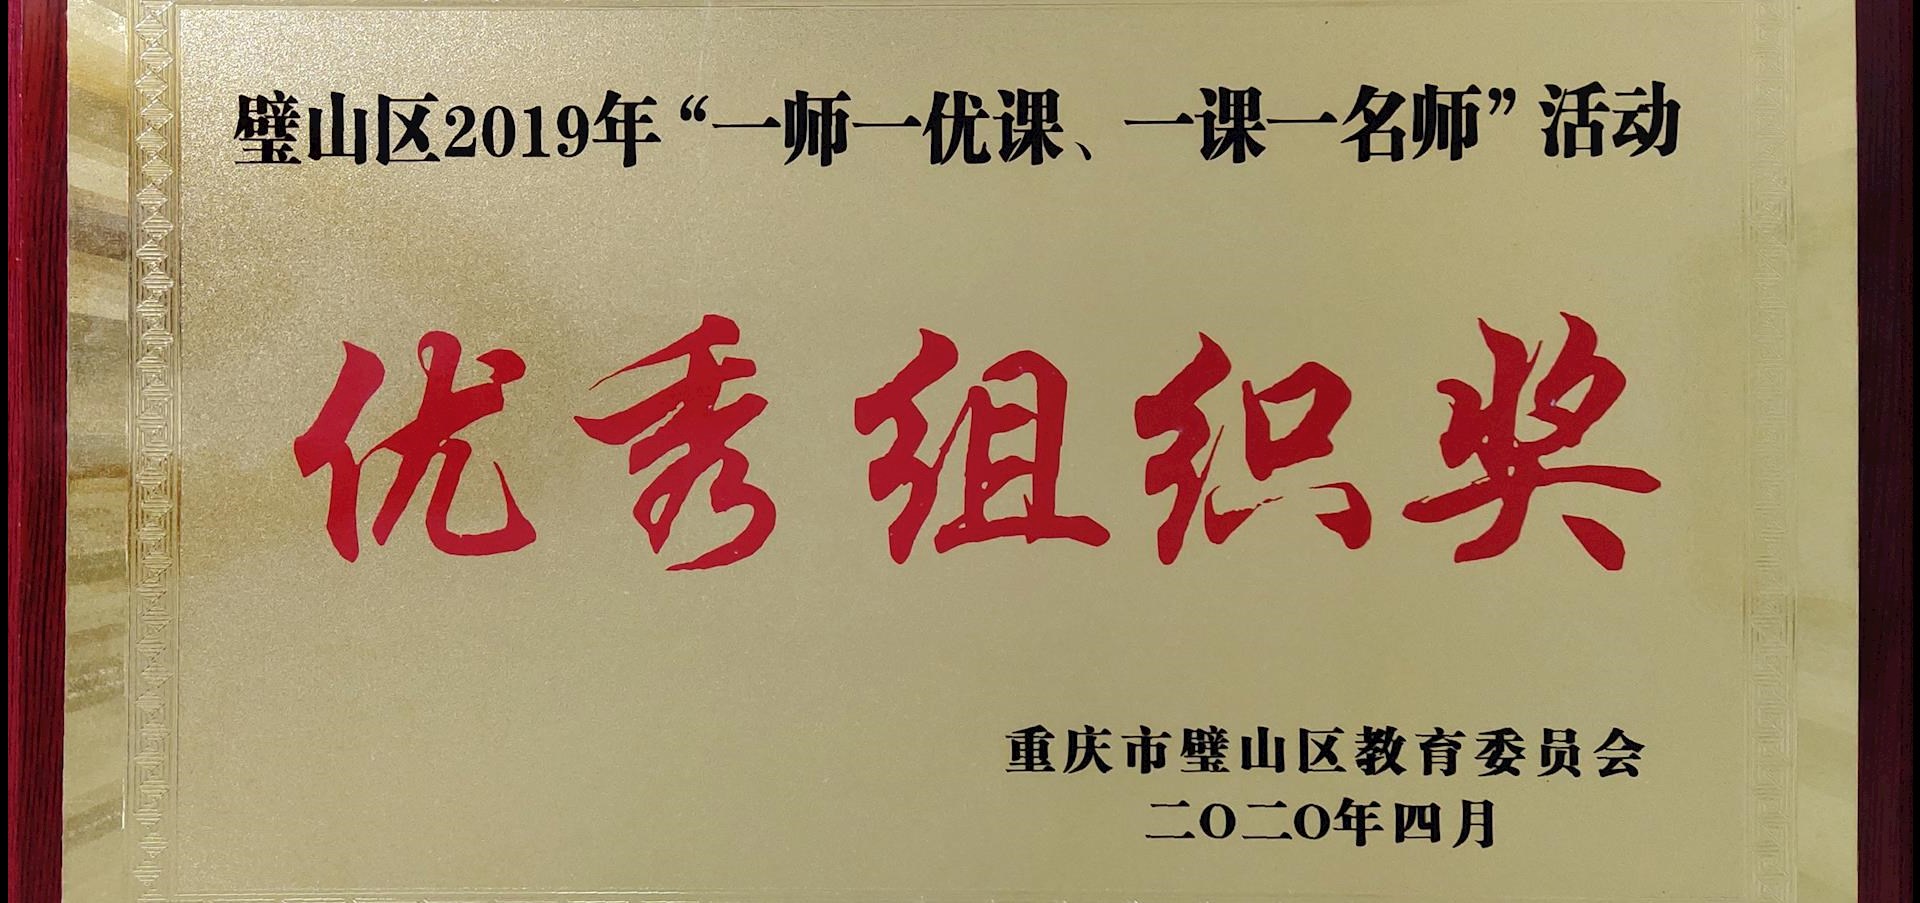 璧山区2019年“一师一优课、一课一名师”活动
优秀组织奖
重庆市璧山区教育委员会
二〇二〇年四月